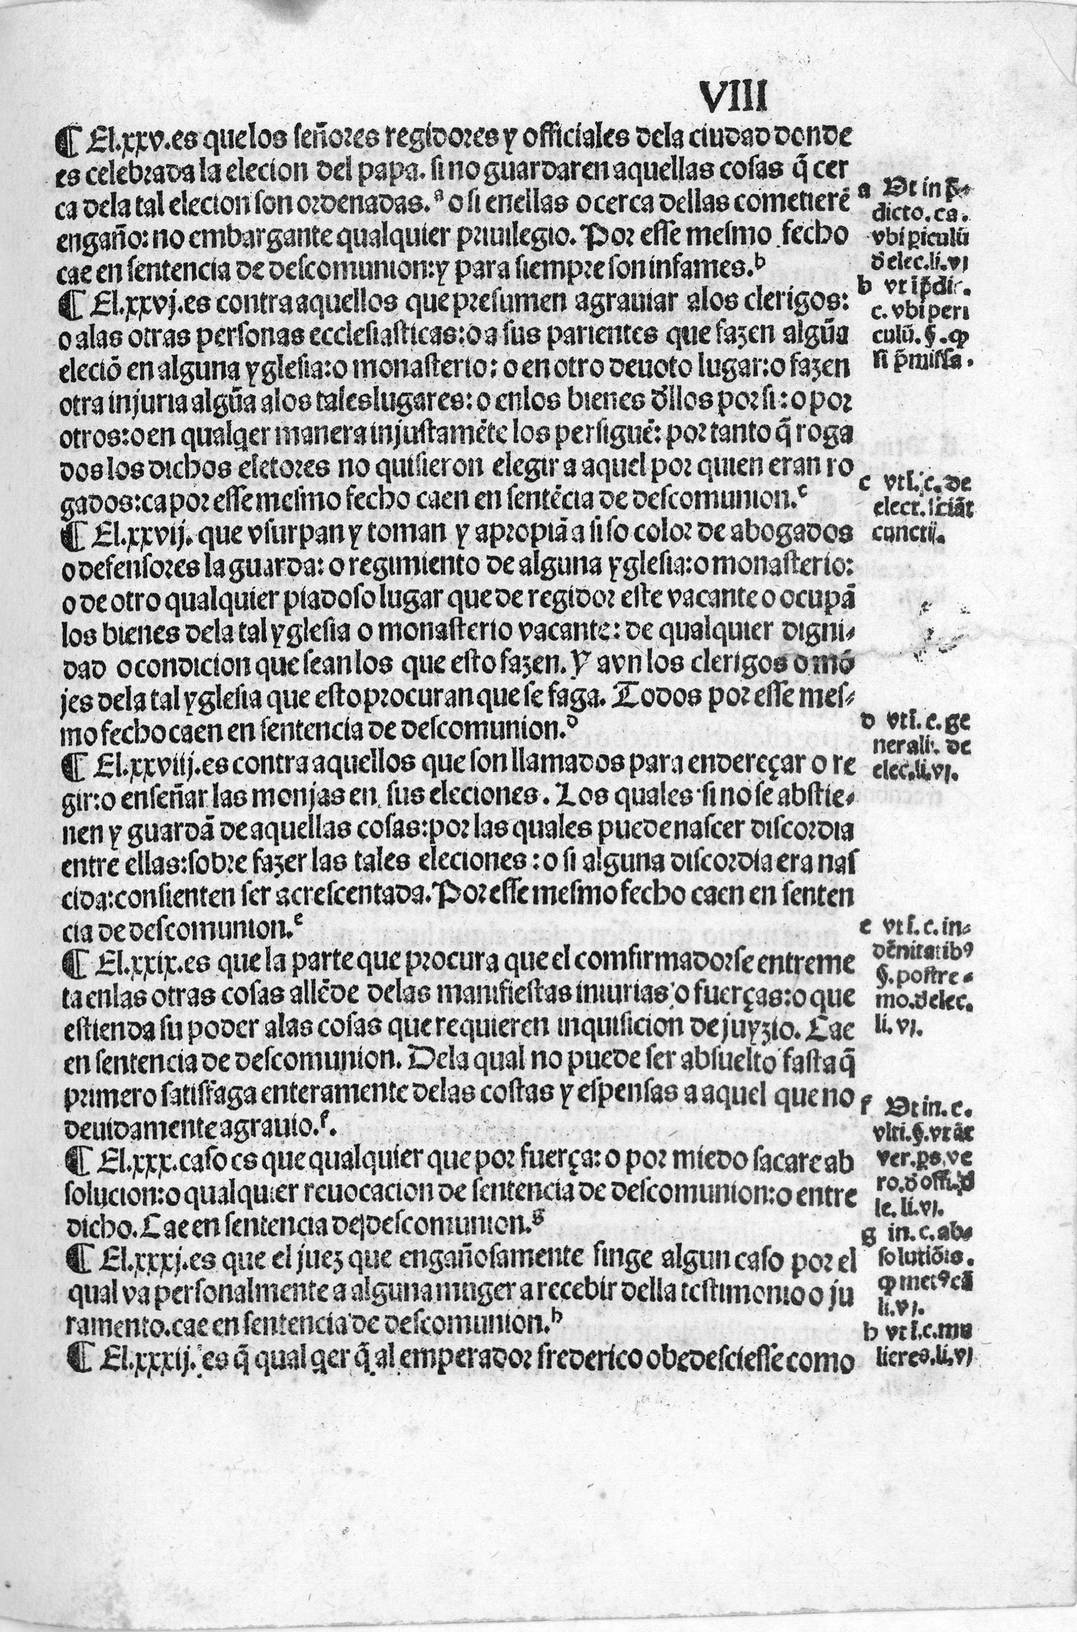 VIII
¶ El.xxv.es que los señores regidores y officiales dela ciudad donde
es celebrada la elecion del papa. si no guardaren aquellas cosas q̃ cer
ca dela tal elecion son ordenadas.ª o si enellas o cerca dellas cometierẽ
engaño: no embargante qualquier priuilegio. Por esse mesmo fecho
cae en sentencia de descomunion: y para siempre son infames.b
¶ El.xxvj.es contra aquellos que presumen agrauiar alos clerigos:
o alas otras personas ecclesiasticas: o a sus parientes que fazen algũa
eleciõ en alguna yglesia: o monasterio: o en otro deuoto lugar: o fazen
otra injuria algũa alos tales lugares: o enlos bienes d̃llos por si: o por
otros: o en qualq̃er manera injustamẽte los persiguẽ: por tanto q̃ roga
dos los dichos eletores no quisieron elegir a aquel por quien eran ro
gados: ca por esse mesmo fecho caen en sentẽcia de descomunion.c
¶ El.xxvij. que vsurpan y toman y apropiã a si so color de abogados
o defensores la guarda: o regimiento de alguna yglesia: o monasterio:
o de otro qualquier piadoso lugar que de regidor este vacante o ocupã
los bienes dela tal yglesia o monasterio vacante: de qualquier digni-
dad o condicion que sean los que esto fazen. Y avn los clerigos o mõ
jes dela tal yglesia que esto procuran que se faga. Todos por esse mes-
mo fecho caen en sentencia de descomunion.d
¶ El.xxviij.es contra aquellos que son llamados para endereçar o re
gir: o enseñar las monjas en sus eleciones. Los quales si no se abstie-
nen y guardã de aquellas cosas: por las quales puede nascer discordia
entre ellas: sobre fazer las tales eleciones: o si alguna discordia era nas
cida: consienten ser acrescentada. Por esse mesmo fecho caen en senten
cia de descomunion.e
¶ El.xxix.es que la parte que procura que el comfirmador se entreme
ta enlas otras cosas allẽde delas manifiestas iniurias o fuerças: o que
estienda su poder alas cosas que requieren inquisicion de juyzio. Cae
en sentencia de descomunion. Dela qual no puede ser absuelto fasta q̃
primero satisfaga enteramente delas costas y espensas a aquel que no
deuidamente agrauio.f.
¶ El.xxx.caso es que qualquier que por fuerça: o por miedo sacare ab
solucion: o qualquier reuocacion de sentencia de descomunion: o entre
dicho. Cae en sentencia de descomunion.g
¶ El.xxxj.es que el juez que engañosamente finge algun caso por el
qual va personalmente a alguna muger a recebir della testimonio o ju
ramento. cae en sentencia de descomunion.h
¶ El.xxxij. es q̃ qual q̃er q̃ al emperador frederico obedesciesse como
a Vt in p̃-
dicto. ca.
vbi piculũ
d̃ elec.li.vj
b vt ip̃dic.
c. vbi peri
culũ. §. qz
si p̃missa.
c vt s̃.c. de
elect. sciãt
cuncti.
d vt s̃. c. ge
nerali. de
elec.li.vj.
e vt s̃. c. in-
dẽnitatibꝰ
§. postre-
mo.d̃ elec.
li. vj.
f Vt in. c.
vlti. §. vtãt
ver. ps. ve
ro. d̃ offi. d̃
le. li. vj.
g in. c. abs
solutiõis.
qz metꝰ cã
li. vj.
h vt s̃. c. mu
lieres.li.vj